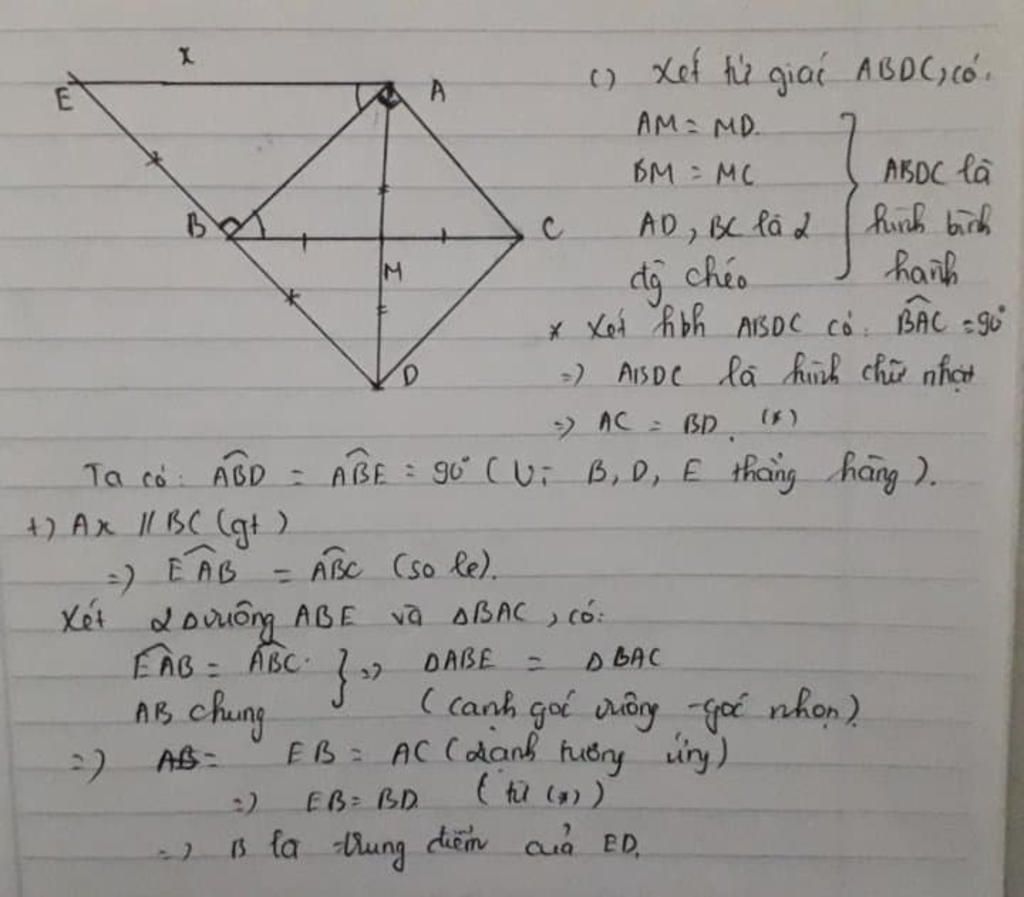 x
E
A
B
C
M
D
c) Xét tứ giác ABDC, có:
AM = MD.
BM = MC
AD, BC là 2
đg chéo
} ABDC là
hình bình
hành
* Xét hbh ABDC có: BAC = 90°
=) ABDC là hình chữ nhật
=) AC = BD. (*)
Ta có: ABD = ABE = 90° (Vì B, D, E thẳng hàng).
+) Ax // BC (gt)
=) EAB = ABC (so le).
Xét 2 Δ vuông ABE và ΔBAC, có:
EAB = ABC.
AB chung
} =) ΔABE = ΔBAC
(cạnh góc vuông - góc nhọn)
=) AB = EB = AC (2 cạnh tương ứng)
=) EB = BD (từ (*))
=) B là trung điểm của ED.